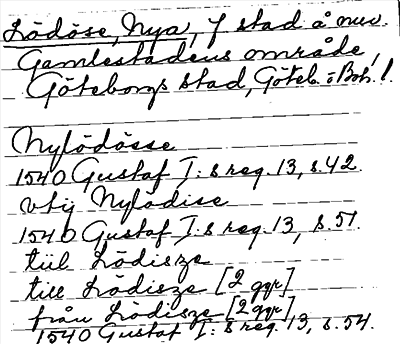 Lödöse, Nya, f stad å nuv.
Gamlestadens område,
Göteborgs stad, Göteb. o Boh. l.
Nylödösse
1540 Gustaf I:s reg. 13, s. 42.
vtij Nylödise
1540 Gustaf I:s reg. 13, s. 51.
tiil Lödisze
till Lödisze [2 ggr]
från Lödisze [2 ggr]
1540 Gustaf I:s reg. 13, s. 54.